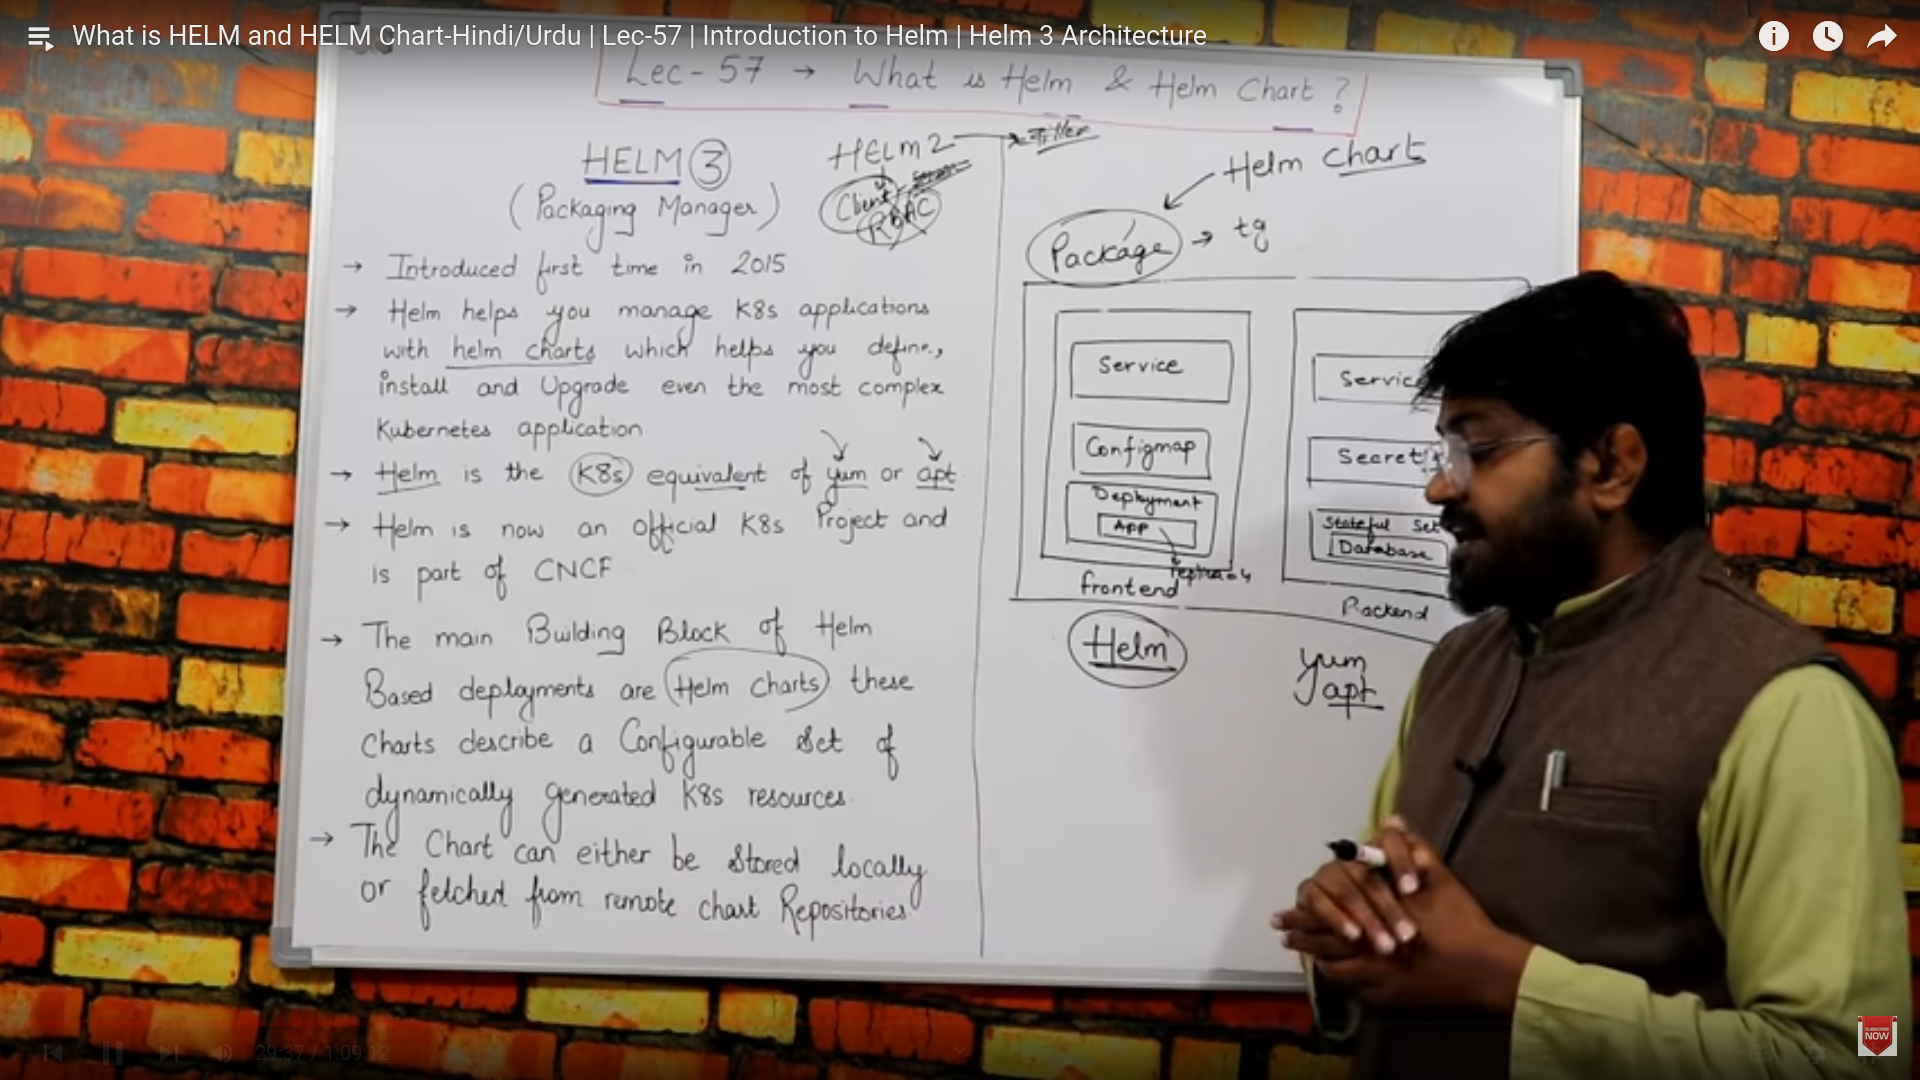 What is HELM and HELM Chart-Hindi/Urdu | Lec-57 | Introduction to Helm | Helm 3 Architecture
Lec - 57 → What is Helm & Helm Chart ?
HELM 3
(Packaging Manager)
HELM 2 →
Client
RBAC
→ Introduced first time in 2015
→ Helm helps you manage K8s applications
with helm charts which helps you define,
install and Upgrade even the most complex
Kubernetes application
→ Helm is the K8s equivalent of yum or apt
→ Helm is now an official K8s Project and
is part of CNCF
→ The main Building Block of Helm
Based deployments are Helm Charts these
Charts describe a Configurable Set of
dynamically generated K8s resources.
→ The Chart can either be Stored locally
or fetched from remote chart Repositories
Helm Chart
Package → tg
Service
Configmap
Deployment
App
frontend
Servic
Secret
Stateful Set
Database
Backend
Helm
yum
apt
29:37 / 1:09:12
SUBSCRIBE
NOW